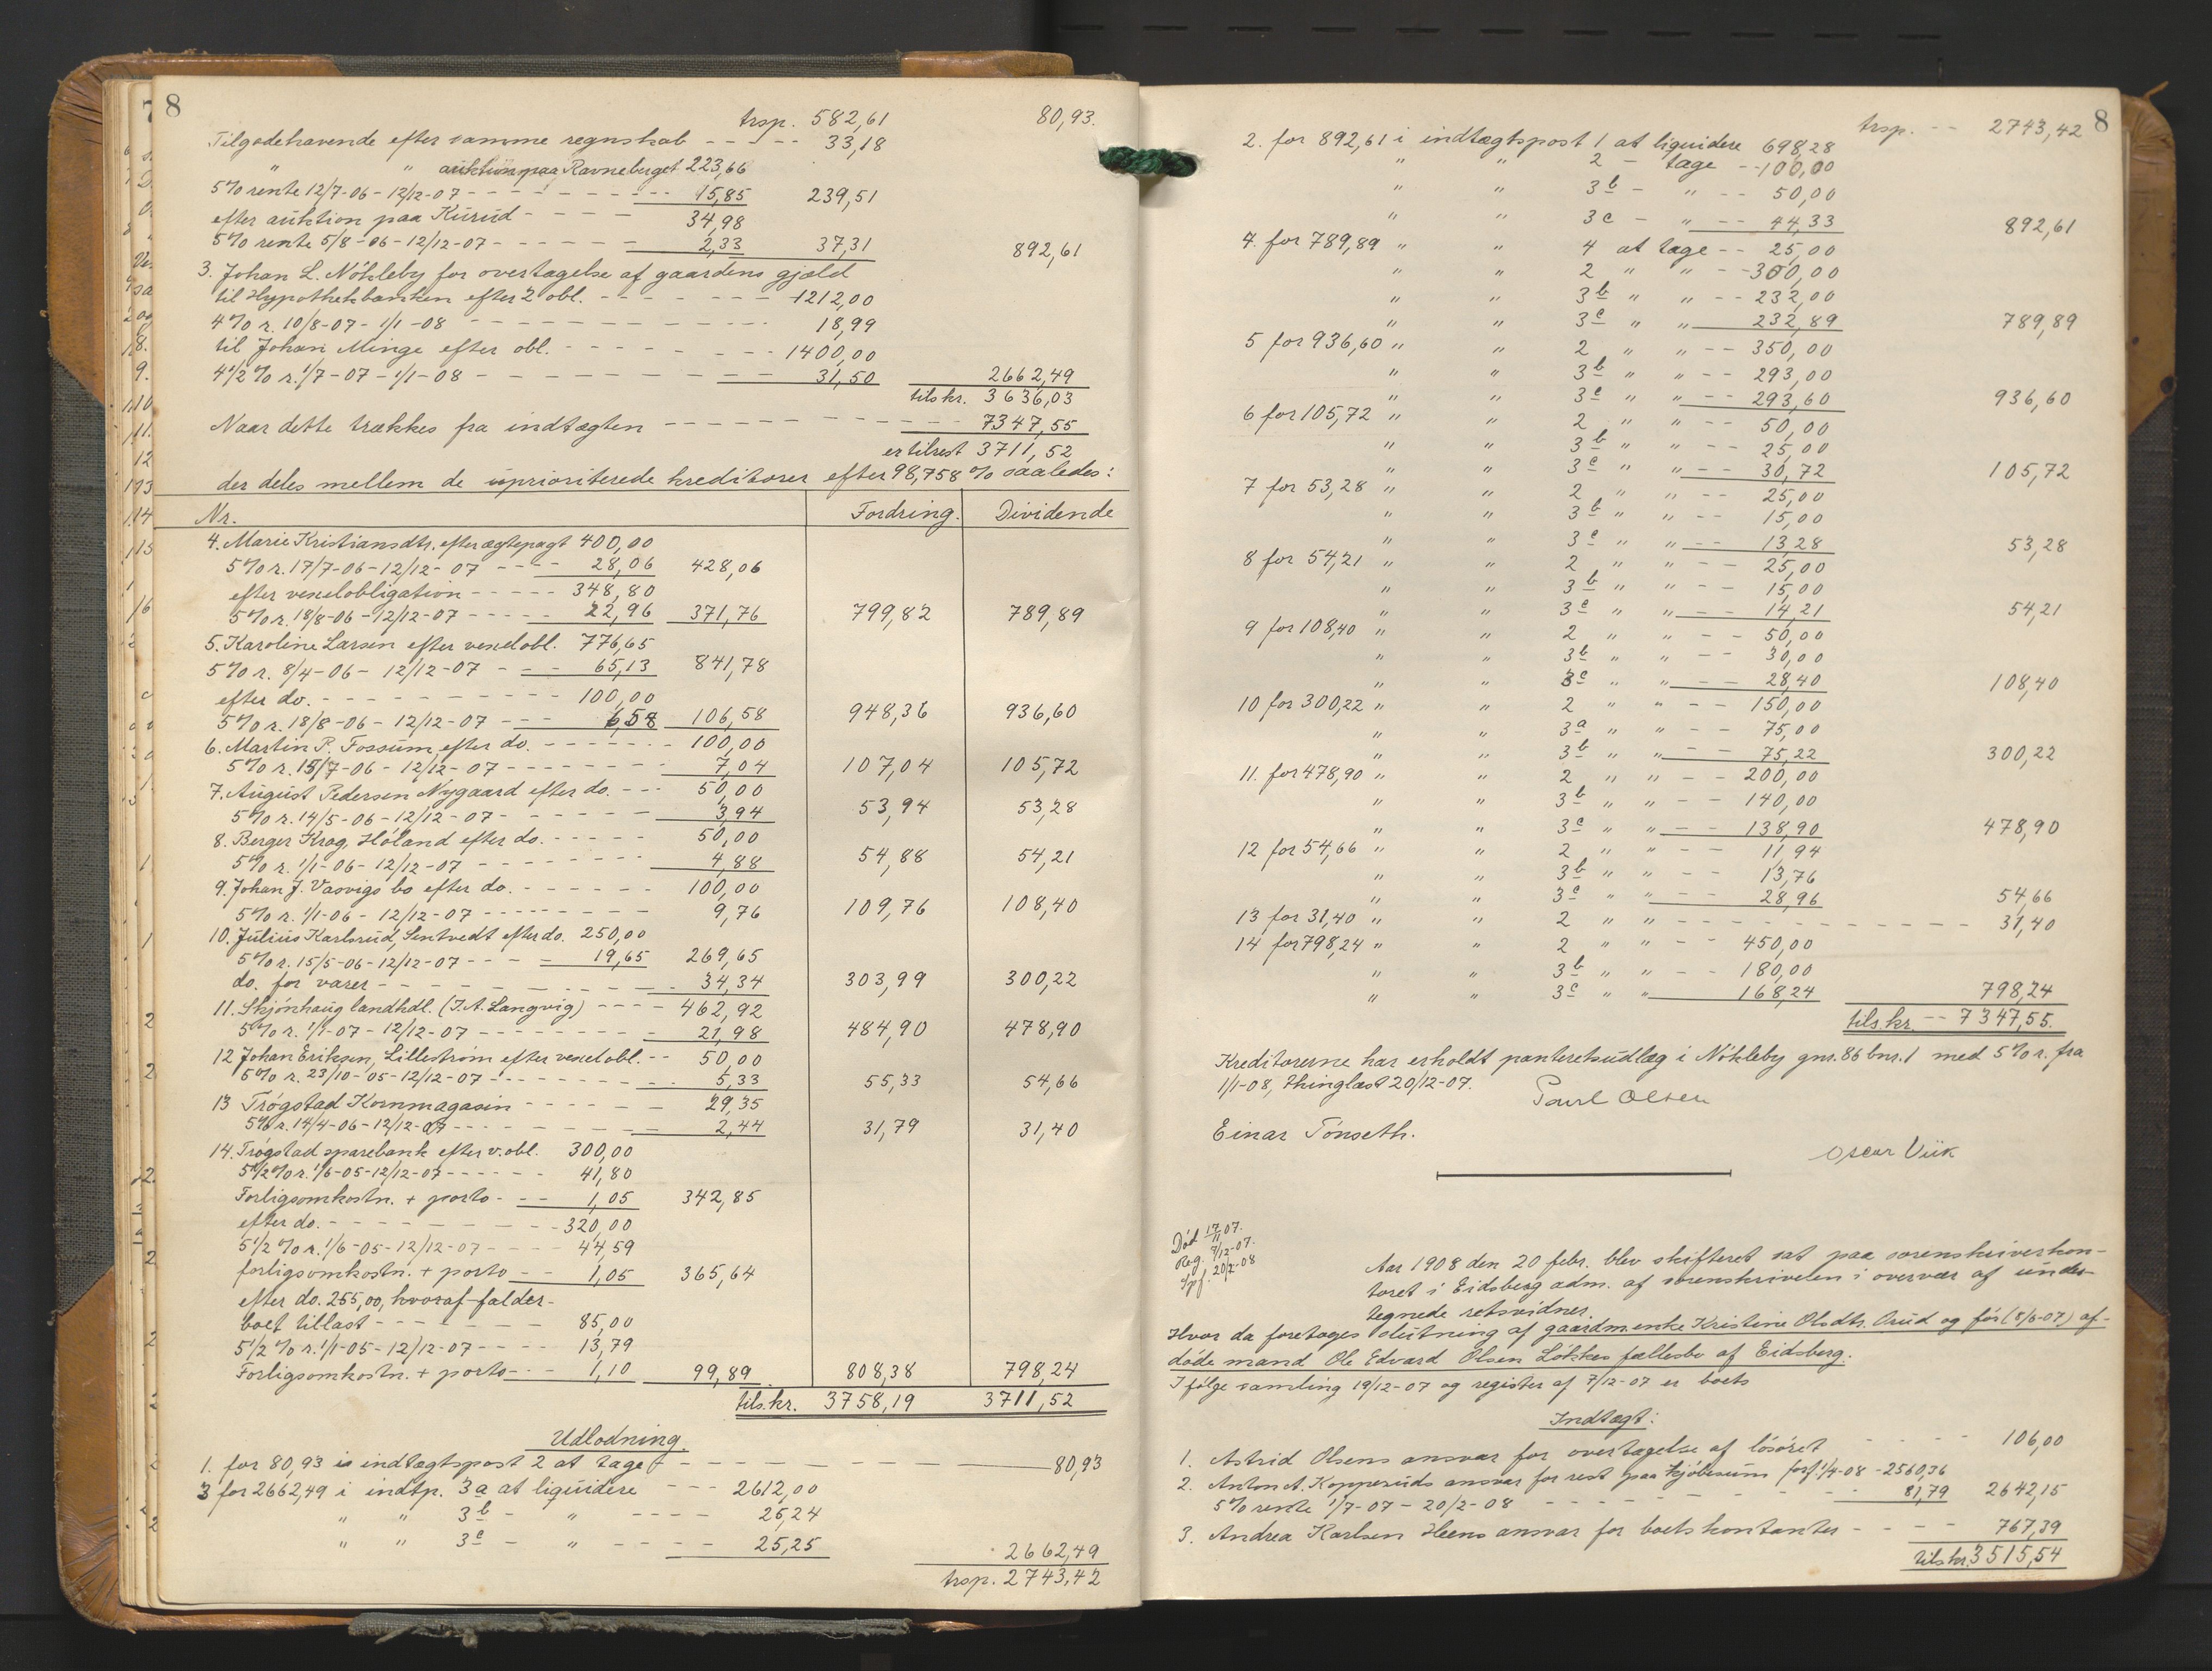 8
trsp. 582,61 80,93.
Tilgodehavende efter samme regnskab - - - - - 33,18
" " auktion paa Ravneberget 223,66
5% rente 12/7-06-12/12-07 - - - - - - - - - - 15,85 239,51
efter auktion paa Kurud - - - - - 34,98
5% rente 5/8-06-12/12-07 - - - - - - 2,33 37,31 892,61
3. Johan L. Nöhleby for overtagelse af gaardens gjæld
til Hypothekbanken efter 2 obl. - - - - - - - 1212,00
4% r. 10/8-07-1/1-08 - - - - - - - - - - 18,99
til Johan Minge efter obl. - - - - - - - - 1400,00
4 1/2 % r. 1/7-07-1/1-08 - - - - - - - - - - 31,50 2662,49
tils kr. 3636,03
Naar dette trækkes fra indtægten - - - - - - - - - - - 7347,55
er tilrest 3711,52
der deles mellem de uprioriterede kreditorer efter 98,758 % saaledes:
Nr. Fordring. Dividende
4. Marie Kristiansdtr. efter ægtepagt 400,00
5% r. 17/7-06-12/12-07 - - - - 28,06 428,06
efter vexelobligation - - - - - 348,80
5% r. 18/8-06-12/12-07 - - - - - 22,96 371,76 799,82 789,89
5. Karoline Larsen efter vexelobl. 776,65
5% r. 8/4-06-12/12-07 - - - 65,13 841,78
efter do. - - - - - - - - - - 100,00
5% r. 18/8-06-12/12-07 - - - 6,58 106,58 948,36 936,60
6. Martin P. Fossum efter do. - - - - - - - 100,00
5% r. 15/7-06-12/12-07 - - - - - - - - 7,04 107,04 105,72
7. August Pedersen Nygaard efter do. - - - 50,00
5% r. 14/5-06-12/12-07 - - - - - - - 3,94 53,94 53,28
8. Berger Krog, Höland efter do. - - - - - 50,00
5% r. 1/1-06-12/12-07 - - - - - - - - 4,88 54,88 54,21
9. Johan J. Vasvigs bo efter do. - - - - - - 100,00
5% r. 1/1-06-12/12-07 - - - - - - - - 9,76 109,76 108,40
10. Julius Karlsrud, Sentvedt efter do. 250,00
5% r. 15/5-06-12/12-07 - - - - - 19,65 269,65
do. for varer - - - - - - - - - - - 34,34 303,99 300,22
11. Skjönhaug landhdl. (J.A. Langvig) - - - - 462,92
5% r. 1/1-07-12/12-07 - - - - - - - - - 21,98 484,90 478,90
12 Johan Eriksen, Lilleström efter vexelobl. - - 50,00
5% r. 23/10-05-12/12-07 - - - - - - - - 5,33 55,33 54,66
13 Trögstad Kornmagasin - - - - - - - 29,35
5% r. 14/4-06-12/12-07 - - - - - - - - 2,44 31,79 31,40
14. Trögstad sparebank efter v.obl. 300,00
5 1/2 % r. 1/6-05-12/12-07 - - - - - - 41,80
Forligsomkostn. + porto - - - 1,05 342,85
efter do. - - - - - - - - - - 320,00
5 1/2 % r. 1/6-05-12/12-07 - - - - - 44,59
forligsomkostn. + porto - - - 1,05 365,64
efter do. 255,00, hvoraf falder
boet tillast - - - - - - - 85,00
5 1/2 % r. 1/1-05-12/12-07 - - - - 13,79
Forligsomkostn. + porto - - - 1,10 99,89 808,38 798,24
tils. kr. 3758,19 3711,52
Udlodning.
1. for 80,93 i indtægtspost 2 at tage - - - - - - - - - - 80,93
3 for 2662,49 i indtp. 3a at liquidere - - - 2612,00
" " 3b - " - - - - 25,24
" " 3c - " - - - - 25,25
2662,49
trsp. 2743,42
8
trsp. - - 2743,42
2. for 892,61 i indtægtspost 1 at liquidere 698,28
" " 2 - tage - - 100,00
" " 3b - " - - 50,00
" " 3c - " - - 44,33 892,61
4. for 789,89 " " 4 at tage - - 25,00
" " 2 " " - - 300,00
" " 3b " " - - 232,00
" " 3c " " 232,89 789,89
5 for 936,60 " " 2 " " - - 350,00
" " 3b " " - - 293,00
" " 3c " " - - 293,60 936,60
6 for 105,72 " " 2 " " - - 50,00
" " 3b " " - - 25,00
" " 3c " " - - 30,72 105,72
7 for 53,28 " " 2 " " - - 25,00
" " 3b " " - - 15,00
" " 3c " " - - 13,28 53,28
8 for 54,21 " " 2 " " - - 25,00
" " 3b " " - - 15,00
" " 3c " " - - 14,21 54,21
9 for 108,40 " " 2 " " - - 50,00
" " 3b " " - - 30,00
" " 3c " " - - 28,40 108,40
10 for 300,22 " " 2 " " - - 150,00
" " 3a " " - - 75,00
" " 3b " " - - 75,22 300,22
11. for 478,90 " " 2 " " - - 200,00
" " 3b " " - - 140,00
" " 3c " " - - 138,90 478,90
12 for 54,66 " " 2 " " - - 11,94
" " 3b " " - - 13,76
" " 3c " " - - 28,96 54,66
13 for 31,40 " " 2 " " - - - - - - - - - - 31,40
14 for 798,24 " " 2 " " - - 450,00
" " 3b " " - - 180,00
" " 3c " " 168,24 798,24
tils. kr. - - 7347,55.
Kreditorerne har erholdt panteretsudlæg i Nöhleby gnr. 86 bnr. 1 med 5% r. fra
1/1-08, thinglæst 20/12-07.
Paul Olsen
Einar Tönseth.
Oscar Viik
Död 17/11 07.
Reg. 7/12-07.
Spf. 20/2-08
Aar 1908 den 20 febr. blev skifteret sat paa sorenskriverkon-
toret i Eidsberg adm. af sorenskriveren i overvær af under-
tegnede retsvidner.
Hvor da foretoges slutning af gaardm.enke Kristine Olsdtr. Crud og för (8/6-07) af-
döde mand Ole Edvard Olsen Lötskes fællesbo af Eidsberg.
I fölge samling 19/12-07 og register af 7/12-07 er boets
Indtægt:
1. Astrid Olsens ansvar for overtagelse af lösöret - - - - 106,00
2. Anton A. Kopperuds ansvar for rest paa kjöbesum forf. 1/4-08 - 2560,36
5% rente 1/7-07-20/2-08 - - - - - - - - - - 81,79 2642,15
3. Andrea Karlsen Heens ansvar for boets kontanter - - - - 767,39
tils kr. 3515,54